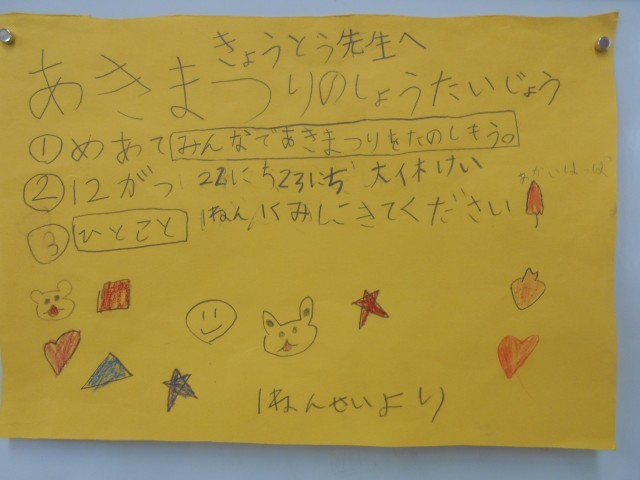 きょうとう先生へ
あきまつりのしょうたいじょう
①めあてみんなであきまつりをたのしもう。
②12がつ 22にち23にち 大休けい
あかいはっぱ
③ひとこと 1ねん1くみにきてください
1ねんせいより